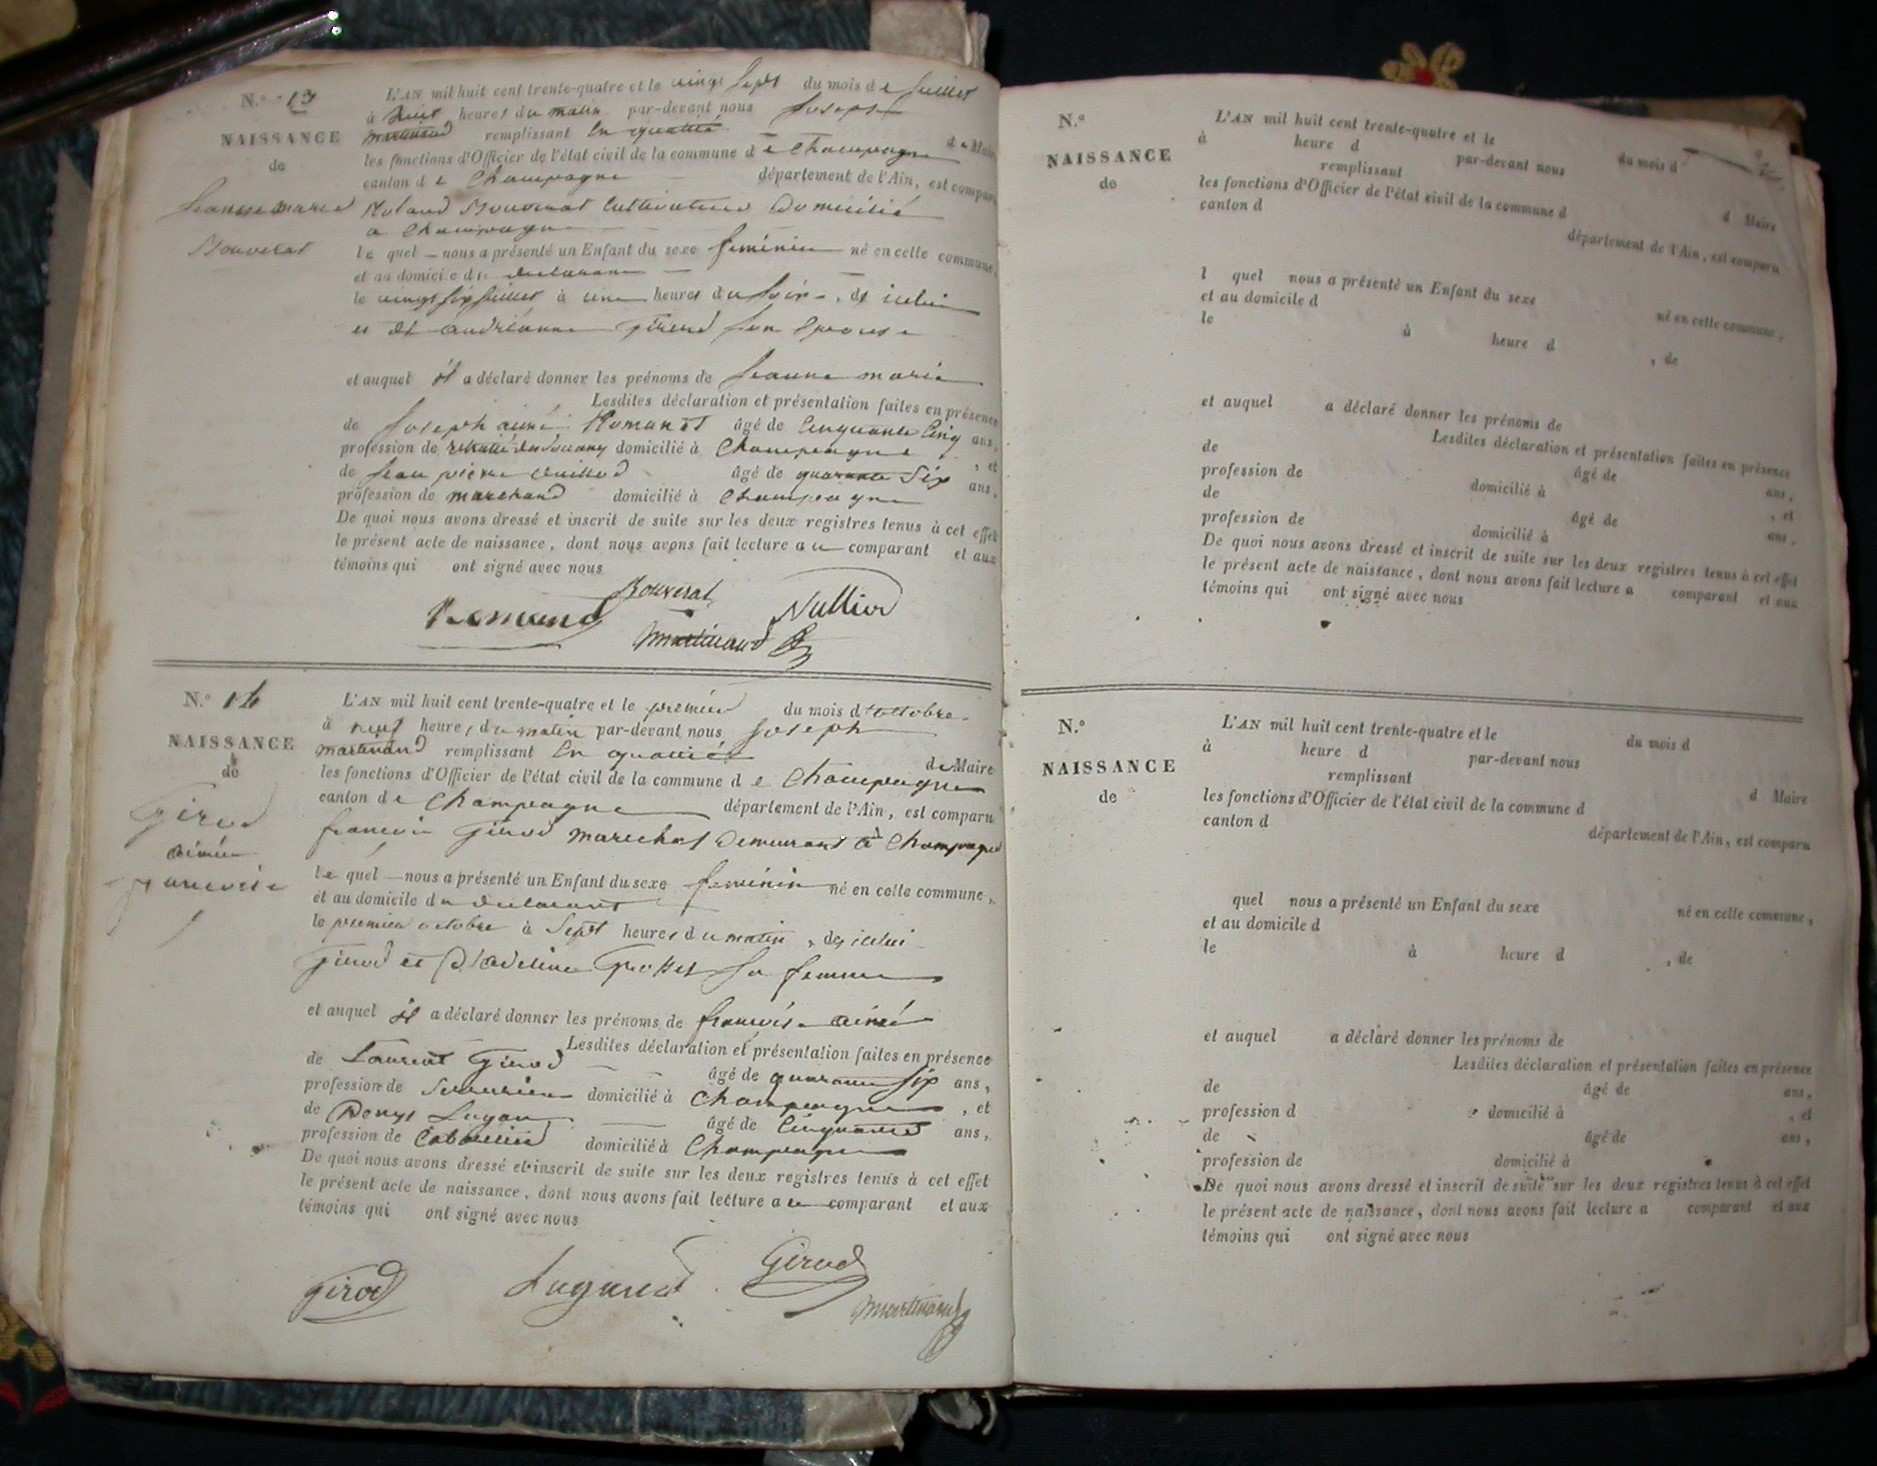 N.o 13
NAISSANCE
de
Jeanne marie
Bouverat
L'AN mil huit cent trente-quatre et le vingt sept du mois de Juillet
à huit heures du matin par-devant nous Joseph
martinand remplissant en qualité de Maire
les fonctions d'Officier de l'état civil de la commune de Champagne
canton de Champagne département de l'Ain, est comparu
Roland Bouverat Cultivateur domicilié
a Champagne
le quel nous a présenté un Enfant du sexe féminin né en cette commune,
et au domicile du declarant
le vingt six juillet à une heures du soir, de icelui
et de andréanne girod son epouse
et auquel il a déclaré donner les prénoms de Jeanne marie
Lesdites déclaration et présentation faites en présence
de Joseph aimé Romand âgé de Cinquante Cinq ans,
profession de domicilié à Champagne, et
de jean pierre âgé de quarante Six ans,
profession de marchand domicilié à Champagne
De quoi nous avons dressé et inscrit de suite sur les deux registres tenus à cet effet
le présent acte de naissance, dont nous avons fait lecture au comparant et aux
témoins qui ont signé avec nous
Bouverat
Romand Nullier
martinand
N.o 14
NAISSANCE
de
Girod
aimée
francoise
L'AN mil huit cent trente-quatre et le premier du mois d'octobre
à neuf heures du matin par-devant nous Joseph
martinand remplissant en qualité de Maire
les fonctions d'Officier de l'état civil de la commune de Champagne
canton de Champagne département de l'Ain, est comparu
francois Girod marechal demeurant à Champagne
le quel nous a présenté un Enfant du sexe feminin né en cette commune,
et au domicile du declarant
le premier octobre à Sept heures du matin, de icelui
Girod et d'adeline Grosset sa femme
et auquel il a déclaré donner les prénoms de francoise aimée
Lesdites déclaration et présentation faites en présence
de Laurent Girod âgé de quarante six ans,
profession de Serrurier domicilié à Champagne, et
de Denys Lugan âgé de Cinquante ans,
profession de Cabaretier domicilié à Champagne
De quoi nous avons dressé et inscrit de suite sur les deux registres tenus à cet effet
le présent acte de naissance, dont nous avons fait lecture au comparant et aux
témoins qui ont signé avec nous
Girod Lugand Girod
martinand
N.o
NAISSANCE
de
L'AN mil huit cent trente-quatre et le du mois d
à heure d par-devant nous
remplissant d Maire
les fonctions d'Officier de l'état civil de la commune d
canton d département de l'Ain, est comparu
l quel nous a présenté un Enfant du sexe né en cette commune,
et au domicile d
le à heure d , de
et auquel a déclaré donner les prénoms de
Lesdites déclaration et présentation faites en présence
de âgé de ans,
profession de domicilié à , et
de âgé de ans,
profession de domicilié à
De quoi nous avons dressé et inscrit de suite sur les deux registres tenus à cet effet
le présent acte de naissance, dont nous avons fait lecture a comparant et aux
témoins qui ont signé avec nous
N.o
NAISSANCE
de
L'AN mil huit cent trente-quatre et le du mois d
à heure d par-devant nous
remplissant d Maire
les fonctions d'Officier de l'état civil de la commune d
canton d département de l'Ain, est comparu
quel nous a présenté un Enfant du sexe né en cette commune,
et au domicile d
le à heure d , de
et auquel a déclaré donner les prénoms de
Lesdites déclaration et présentation faites en présence
de âgé de ans,
profession d domicilié à , et
de âgé de ans,
profession de domicilié à
De quoi nous avons dressé et inscrit de suite sur les deux registres tenus à cet effet
le présent acte de naissance, dont nous avons fait lecture a comparant et aux
témoins qui ont signé avec nous